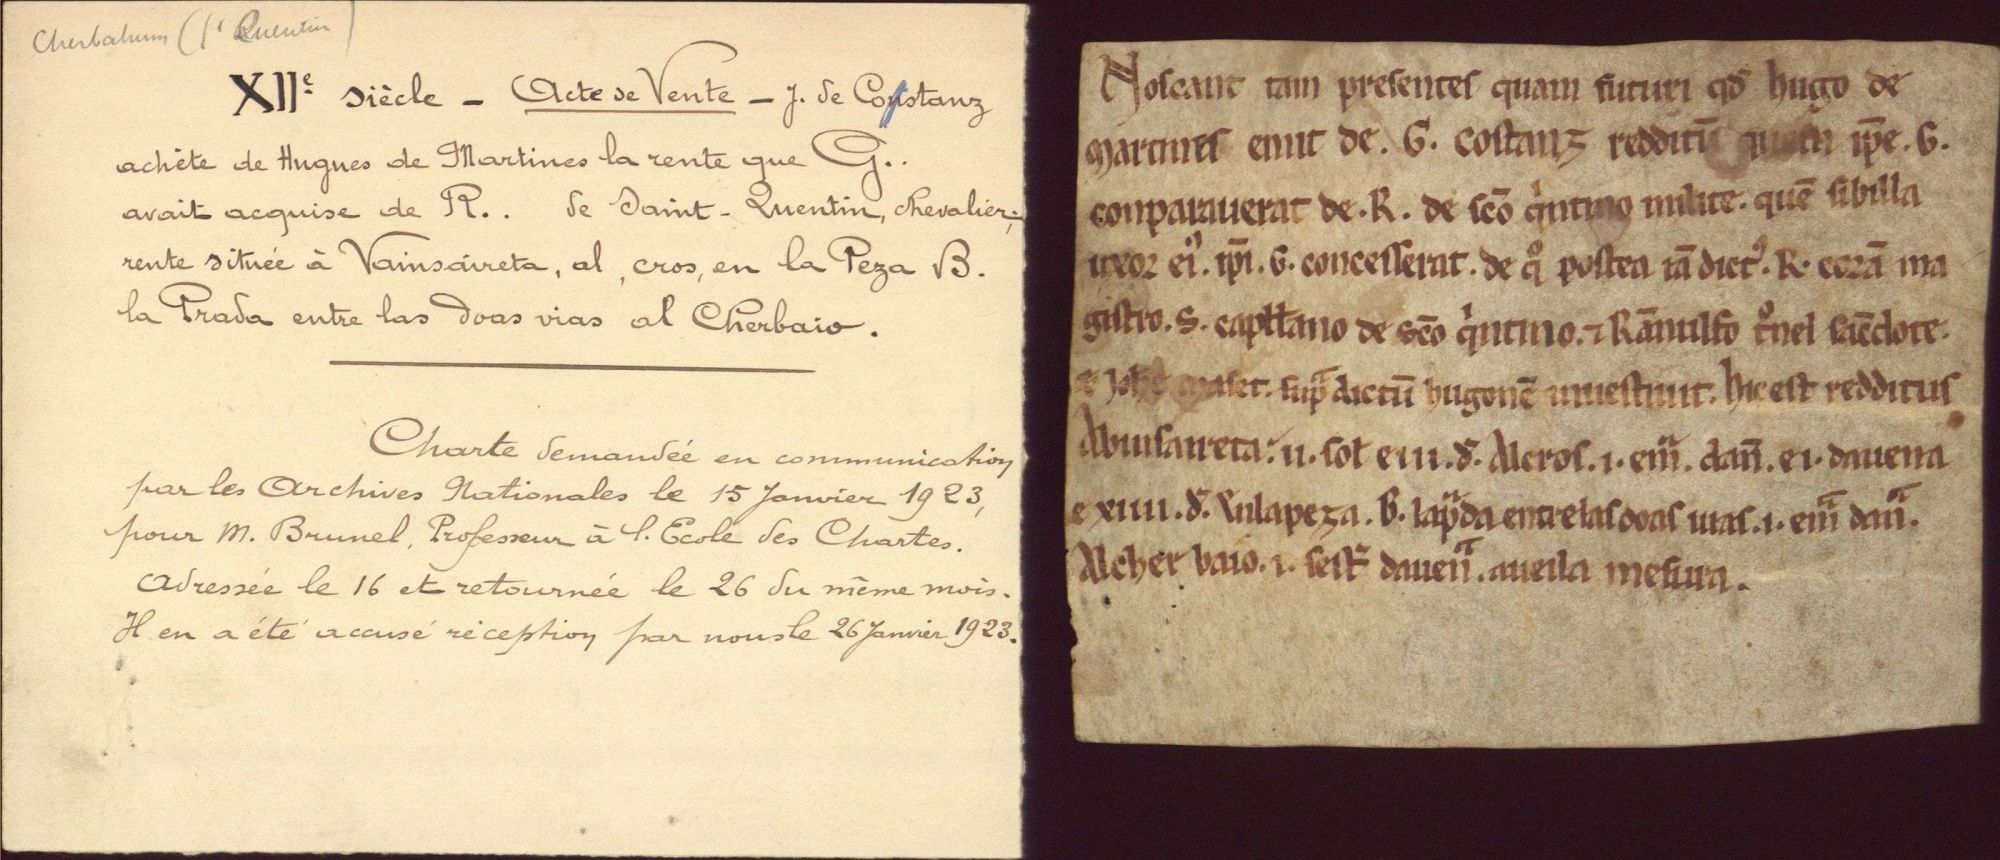 Cherbatum (St Quentin)
XIIe siècle - Acte de Vente - J. de Constanz
achète de Hugues de Martines la rente que G..
avait acquise de R.. de Saint-Quentin, chevalier;
rente située à Vainsaireta, al cros, en la Peza B.
la Prada entre las doas vias al Cherbaio.
Charte demandée en communication
par les Archives Nationales le 15 Janvier 1923,
pour M. Brunel, Professeur à l'Ecole des Chartes.
Adressée le 16 et retournée le 26 du même mois.
Il en a été accusé réception par nous le 26 Janvier 1923.
Noscant tam presentes quam futuri qd hugo de
Martines emit de . G. costanz redditū ip̄e . G.
conparauerat de . R . de sc̄o q̍ntino milite . quē sibilla
uxor ei᾽. ip̄i . G. concesserat . de q̊ postea iā dict᾽. R. corā ma
gistro . S . capłłano de sc̄o q̍ntino . ⁊ Rānulfo t̊nel sac̄dote .
sup̄dictū hugonē inuestiuit . hic est redditus
Abinsaireta : ii . sol e iii . d̄. Alcros . i . em̄ . dan̄ . e i . dauena
e xiiii . d̄. Enlapeza . B . lap̄da entrelasdoas uias . i . em̄ dan̄ .
Alcher baio . i . sest̄ dauen̄ . aueila mesura .